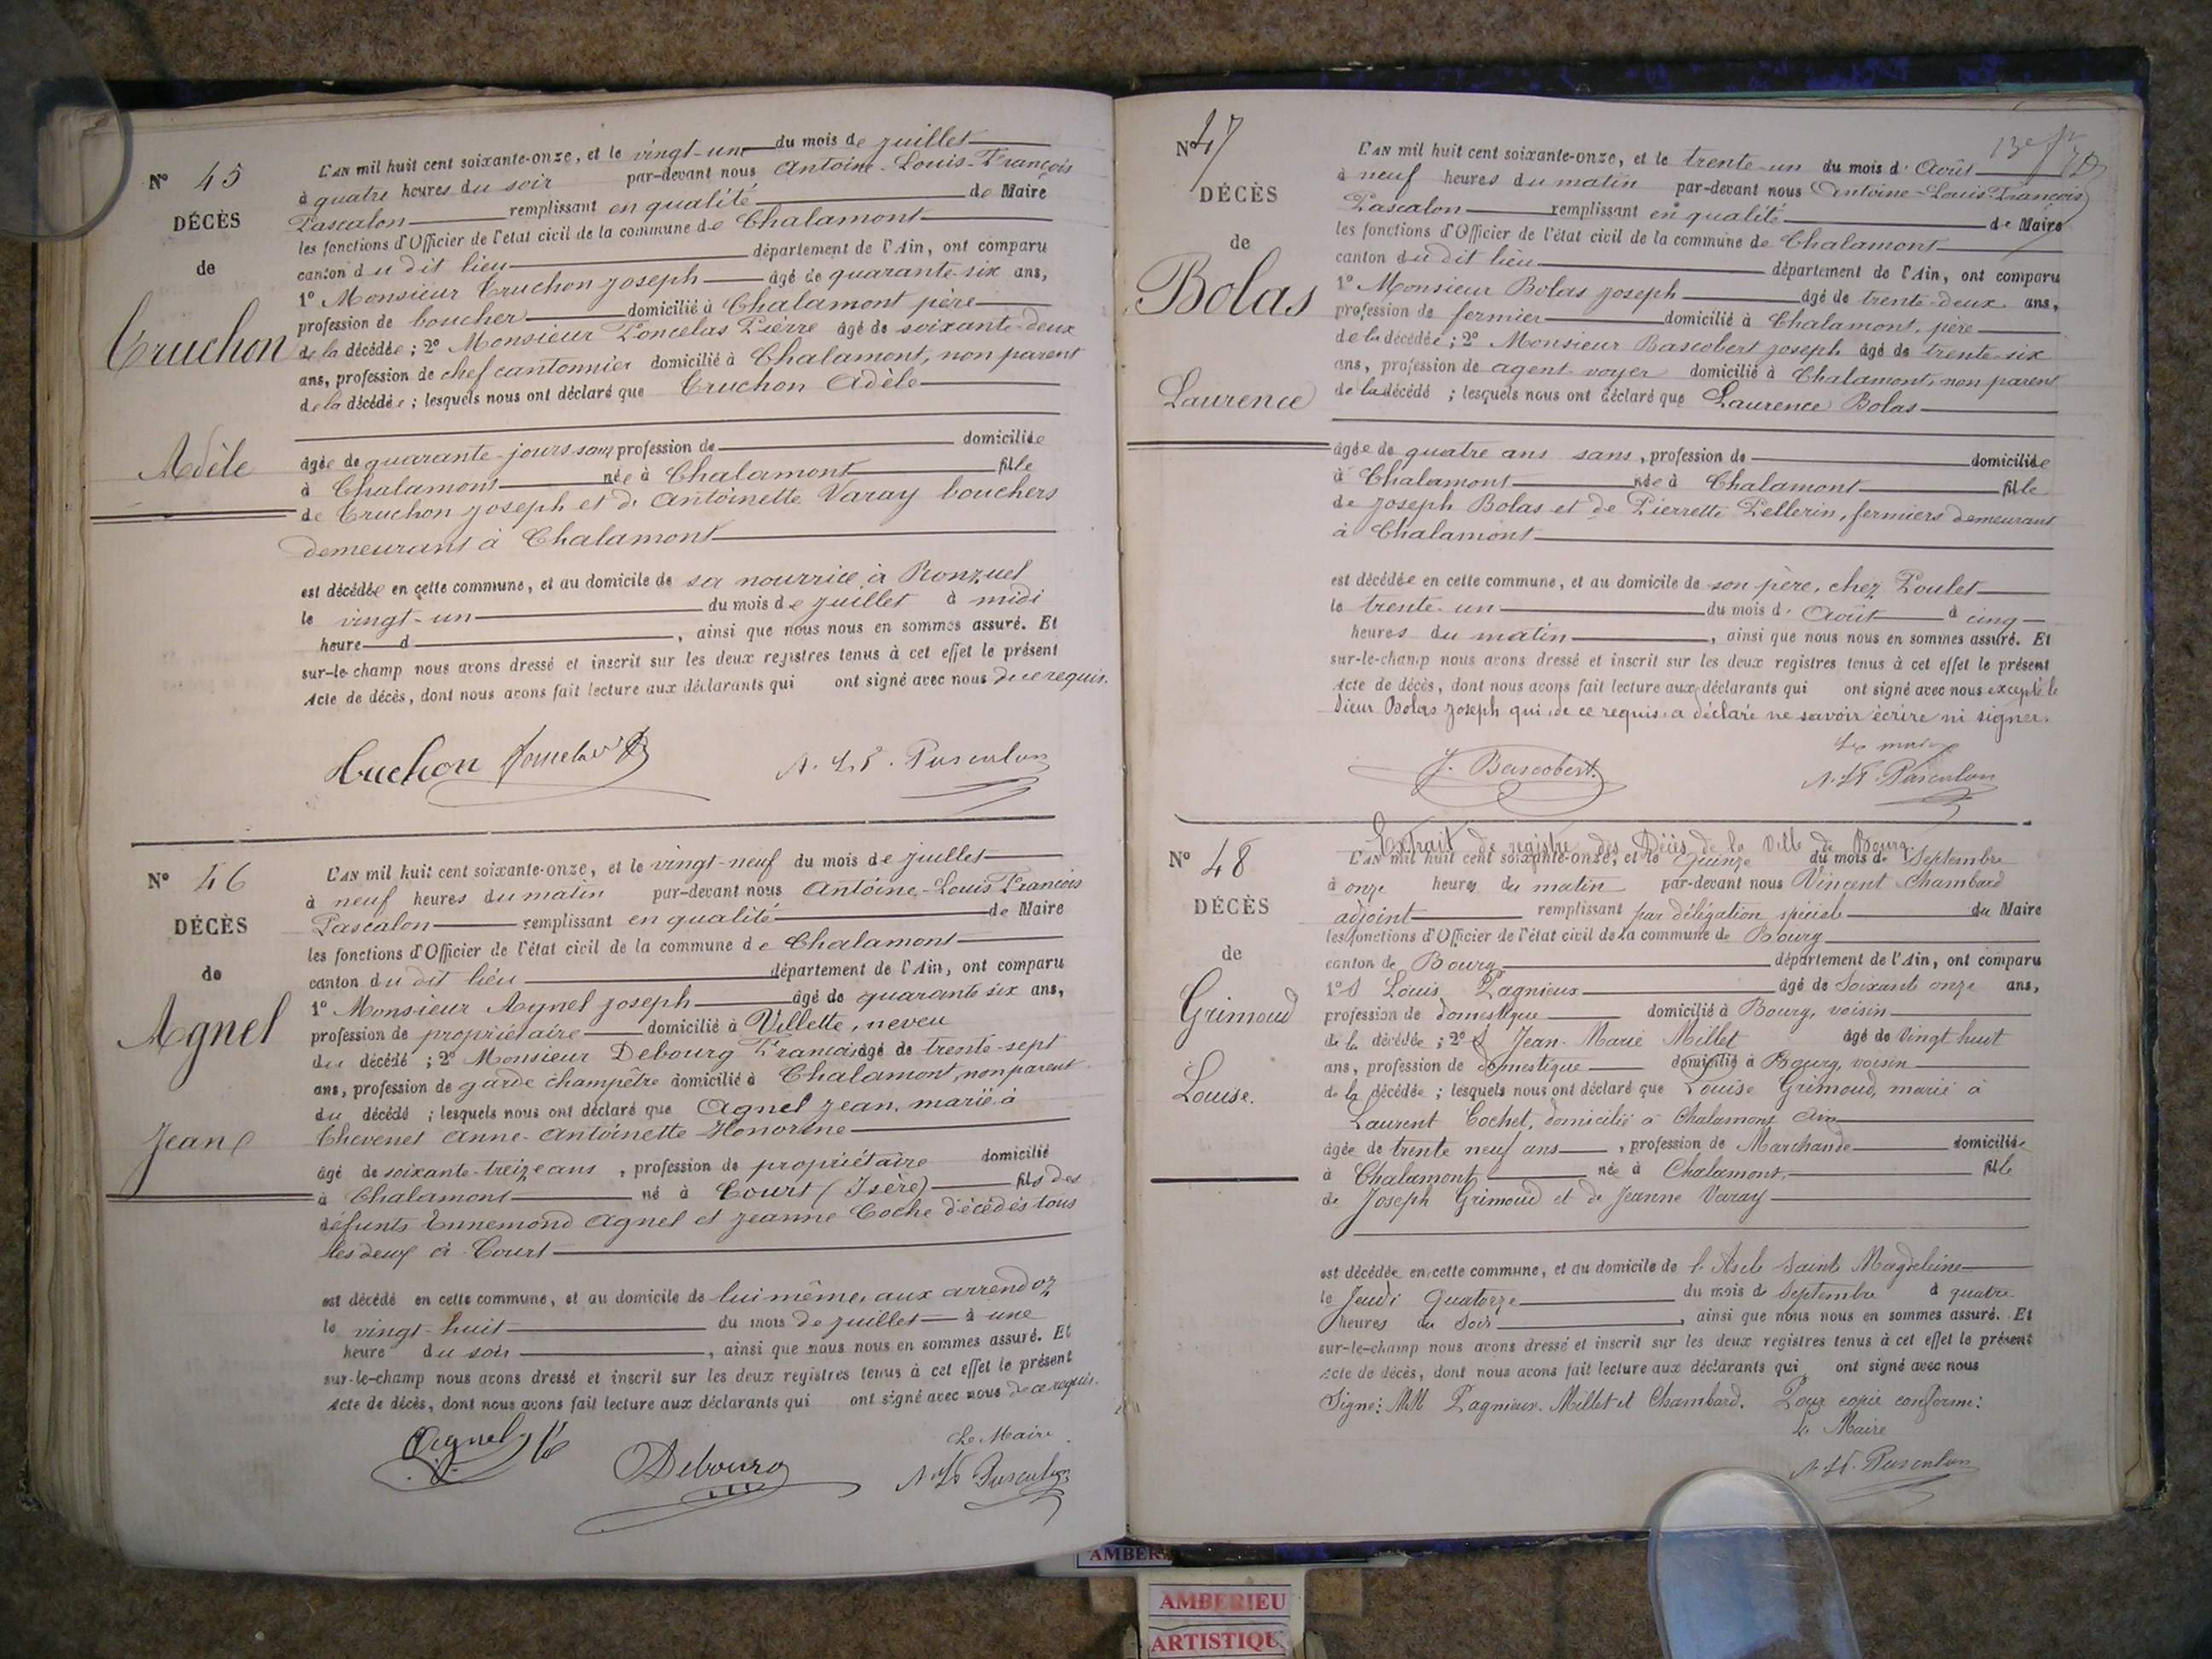 N° 45
DÉCÈS
de
Truchon
Adèle
L'AN mil huit cent soixante-onze, et le vingt-un du mois de juillet
à quatre heures du soir par-devant nous Antoine-Louis-François
Pascalon remplissant en qualité de Maire
les fonctions d'Officier de l'état civil de la commune de Chalamont
canton du dit lieu département de l'Ain, ont comparu
1° Monsieur Truchon Joseph âgé de quarante-six ans,
profession de boucher domicilié à Chalamont père
de la décédée ; 2° Monsieur Poncelas Pierre âgé de soixante-deux
ans, profession de chef cantonnier domicilié à Chalamont, non parent
de la décédée ; lesquels nous ont déclaré que Truchon Adèle
âgée de quarante-jours sans profession de domiciliée
à Chalamont née à Chalamont fille
de Truchon Joseph et de Antoinette Varay bouchers
demeurant à Chalamont
est décédée en cette commune, et au domicile de sa nourrice à Ronzuel
le vingt-un du mois de juillet à midi
heure d , ainsi que nous nous en sommes assuré. Et
sur-le-champ nous avons dressé et inscrit sur les deux registres tenus à cet effet le présent
Acte de décès, dont nous avons fait lecture aux déclarants qui ont signé avec nous de ce requis.
Truchon A. L. F. Pascalon
N° 46
DÉCÈS
de
Agnel
Jean
L'AN mil huit cent soixante-onze, et le vingt-neuf du mois de juillet
à neuf heures du matin par-devant nous Antoine-Louis François
Pascalon remplissant en qualité de Maire
les fonctions d'Officier de l'état civil de la commune de Chalamont
canton du dit lieu département de l'Ain, ont comparu
1° Monsieur Agnel Joseph âgé de quarante six ans,
profession de propriétaire domicilié à Villette, neveu
du décédé ; 2° Monsieur Debourg François âgé de trente-sept
ans, profession de garde champêtre domicilié à Chalamont, non parent
du décédé ; lesquels nous ont déclaré que Agnel Jean, marié à
Chevenet Anne-Antoinette Honorine
âgé de soixante-treize ans , profession de propriétaire domicilié
à Chalamont né à Court (Isère) fils des
défunts Ennemond Agnel et Jeanne Coche décédés tous
les deux à Court
est décédé en cette commune, et au domicile de lui même, aux arrendoz
le vingt-huit du mois de juillet à une
heure du soir , ainsi que nous nous en sommes assuré. Et
sur-le-champ nous avons dressé et inscrit sur les deux registres tenus à cet effet le présent
Acte de décès, dont nous avons fait lecture aux déclarants qui ont signé avec nous de ce requis.
Le Maire
Agnel Debourg A. L. F. Pascalon
N° 47
DÉCÈS
de
Bolas
Laurence
L'AN mil huit cent soixante-onze, et le trente-un du mois d' Août
à neuf heures du matin par-devant nous Antoine-Louis-François
Pascalon remplissant en qualité de Maire
les fonctions d'Officier de l'état civil de la commune de Chalamont
canton du dit lieu département de l'Ain, ont comparu
1° Monsieur Bolas Joseph âgé de trente-deux ans,
profession de fermier domicilié à Chalamont, père
de la décédée ; 2° Monsieur Bascobert Joseph âgé de trente-six
ans, profession de agent voyer domicilié à Chalamont, non parent
de la décédé ; lesquels nous ont déclaré que Laurence Bolas
âgée de quatre ans sans , profession de domiciliée
à Chalamont née à Chalamont fille
de Joseph Bolas et de Pierrette Pellerin, fermiers demeurant
à Chalamont
est décédée en cette commune, et au domicile de son père, chez Poulet
le trente-un du mois d' Août à cinq
heures du matin , ainsi que nous nous en sommes assuré. Et
sur-le-champ nous avons dressé et inscrit sur les deux registres tenus à cet effet le présent
Acte de décès, dont nous avons fait lecture aux déclarants qui ont signé avec nous excepté le
Sieur Bolas Joseph qui de ce requis a déclaré ne savoir écrire ni signer.
Le maire
J. Bascobert. A. L. F. Pascalon
N° 48
DÉCÈS
de
Grimoud
Louise.
Extrait de registre des Décès de la Ville de Bourg.
L'AN mil huit cent soixante-onze, et le Quinze du mois de Septembre
à onze heures du matin par-devant nous Vincent Chambard
adjoint remplissant par délégation spéciale du Maire
les fonctions d'Officier de l'état civil de la commune de Bourg
canton de Bourg département de l'Ain, ont comparu
1° S Louis Pagnieux âgé de Soixante onze ans,
profession de domestique domicilié à Bourg, voisin
de la décédée ; 2° S Jean-Marie Millet âgé de Vingt huit
ans, profession de domestique domicilié à Bourg, voisin
de la décédée ; lesquels nous ont déclaré que Louise Grimoud, marié à
Laurent Cochet, domicilié à Chalamont Ain
âgée de trente neuf ans , profession de Marchande domiciliée
à Chalamont née à Chalamont, fille
de Joseph Grimoud et de Jeanne Varay
est décédée en cette commune, et au domicile de l'Asile Sainte Magdeleine
le Jeudi Quatorze du mois de Septembre à quatre
heures du Soir , ainsi que nous nous en sommes assuré. Et
sur-le-champ nous avons dressé et inscrit sur les deux registres tenus à cet effet le présent
Acte de décès, dont nous avons fait lecture aux déclarants qui ont signé avec nous
Signé: MM Pagnieux. Millet et Chambard. Pour copie conforme:
Le Maire
A. L. F. Pascalon
AMBERIEU
ARTISTIQU